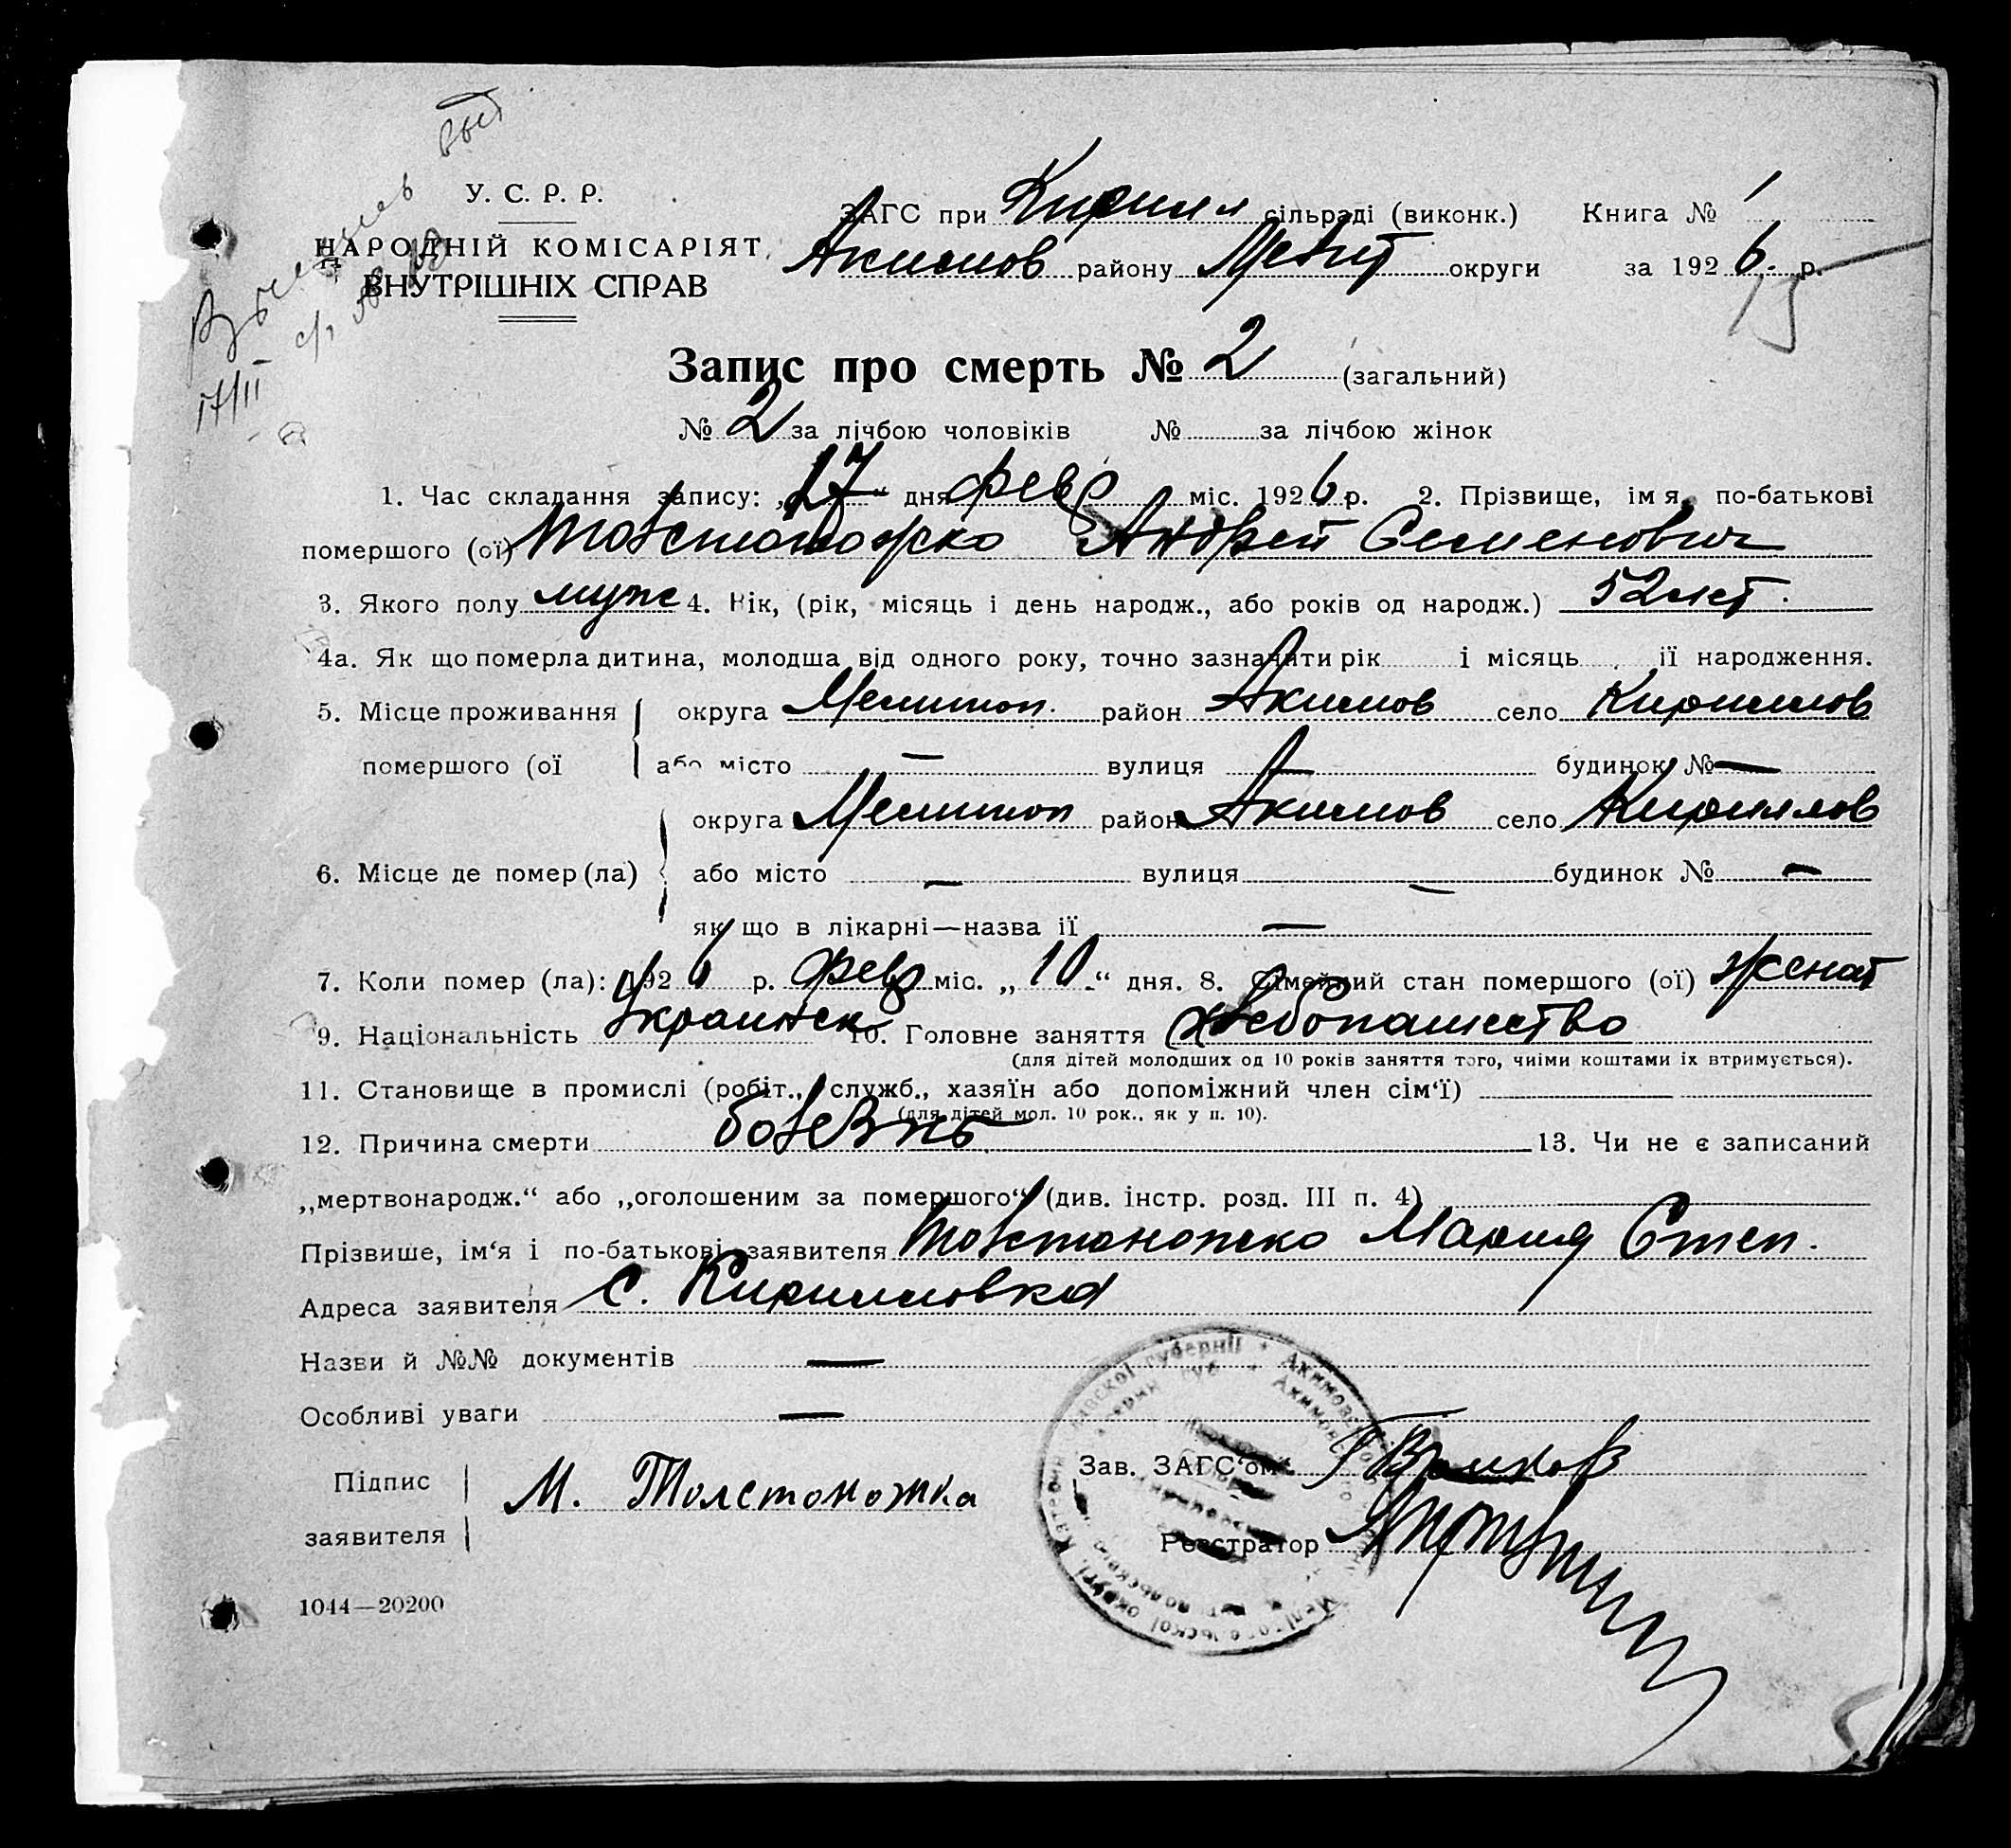 У. С. Р. Р.
НАРОДНІЙ КОМІСАРІЯТ
ВНУТРІШНІХ СПРАВ
17/II
ЗАГС при Кирилл сільраді (виконк.) Книга № 1
Акимов району Мелит округи за 1926 р.
15
Запис про смерть № 2 (загальний)
№ 2 за лічбою чоловіків № за лічбою жінок
1. Час складання запису: „17“ дня февр міс. 1926 р. 2. Прізвище, імя, по-батькові
помершого (ої) Андрей Семенович
3. Якого полу муж 4. Вік, (рік, місяць і день народж., або років од народж.) 52 лет.
4а. Як що померла дитина, молодша від одного року, точно зазначити рік і місяць її народження.
5. Місце проживання округа Мелитоп. район Акимов село Кириллов
помершого (ої або місто — вулиця — будинок № —
округа Мелитоп район Акимов село Кириллов
6. Місце де помер (ла) або місто — вулиця — будинок № —
як що в лікарні—назва її —
7. Коли помер (ла): 1926 р. февр міс. „10“ дня. 8. Сімейний стан помершого (ої) женат
9. Національність Украинск 10. Головне заняття хлебопашество
(для дітей молодших од 10 років заняття того, чиїми коштами їх втримується).
11. Становище в промислі (робіт., служб., хазяїн або допоміжний член сім‘ї)
(для дітей мол. 10 рок., як у п. 10).
12. Причина смерти болезнь 13. Чи не є записаний
„мертвонародж.“ або „оголошеним за помершого“ (див. інстр. розд. III п. 4)
Прізвише, ім‘я і по-батькові заявителя Толстоножко Мария Степ.
Адреса заявителя с. Кирилловка
Назви й №№ документів —
Особливі уваги —
Підпис
заявителя
М. Толстоножка
Зав. ЗАГС‘ом
Реєстратор
1044—20200